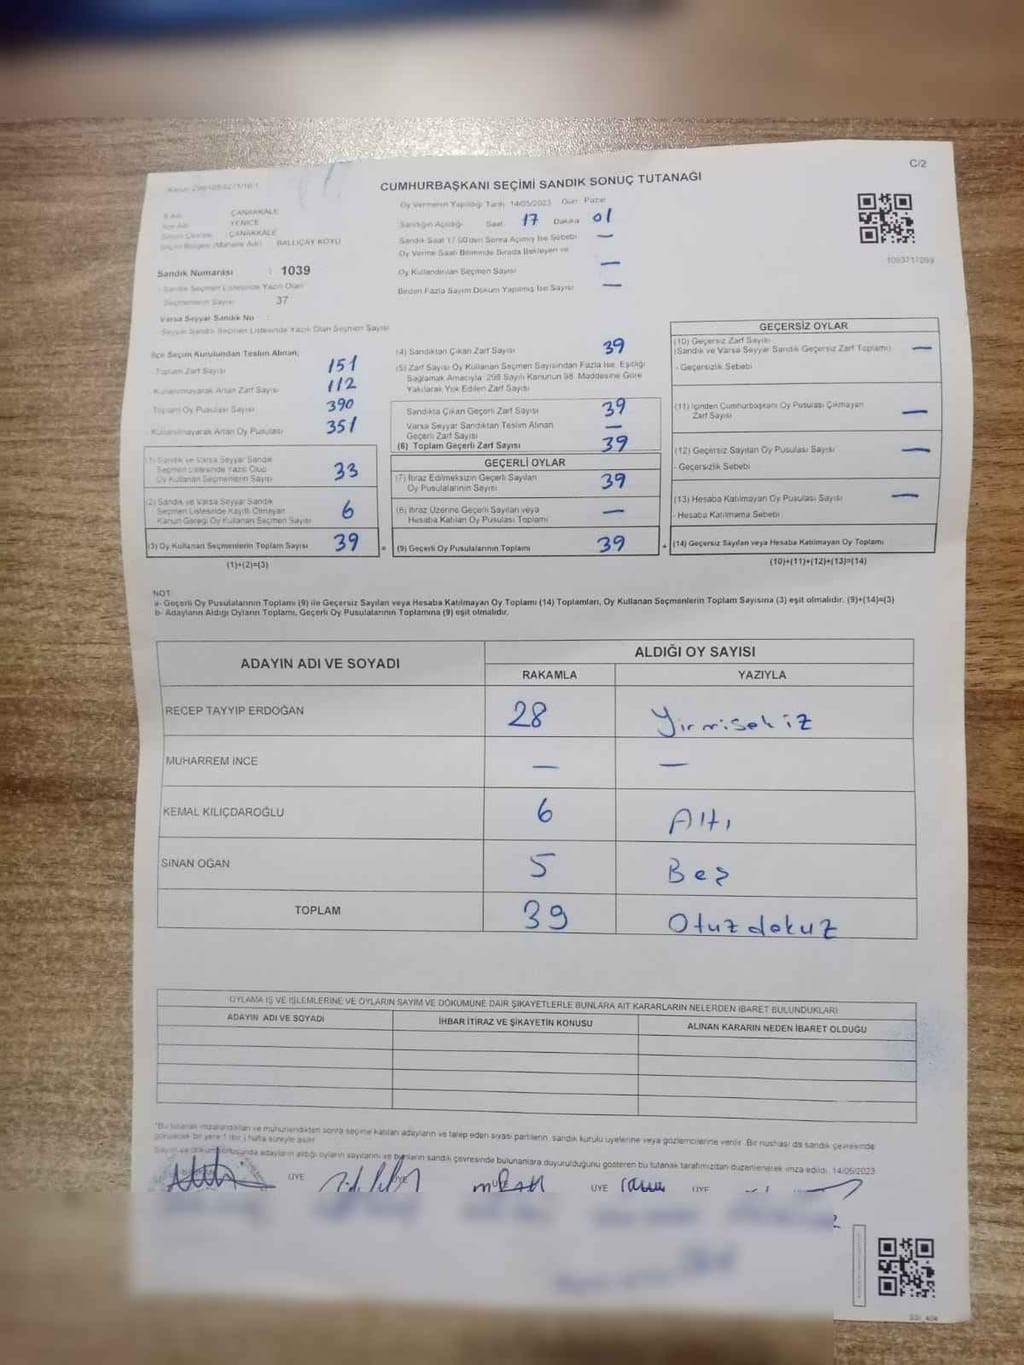 C/2
CUMHURBAŞKANI SEÇİMİ SANDIK SONUÇ TUTANAĞI
Oy Vermenin Yapıldığı Tarih: 14/05/2023 Gün: Pazar
ÇANAKKALE
YENİCE
ÇANAKKALE
BALLIÇAY KÖYÜ
Sandığın Açıldığı Saat: 17 Dakika 01
Sandık Saat 17:00'den Sonra Açılmış İse Sebebi —
Oy Verme Saati Bitiminde Sırada Bekleyen ve
Oy Kullandırılan Seçmen Sayısı —
Birden Fazla Sayım Döküm Yapılmış İse Sayısı —
Sandık Numarası : 1039
Sandık Seçmen Listesinde Yazılı Olan
Seçmenlerin Sayısı 37
Varsa Seyyar Sandık No :
Seyyar Sandık Seçmen Listesinde Yazılı Olan Seçmen Sayısı
İlçe Seçim Kurulundan Teslim Alınan;
Toplam Zarf Sayısı 151
Kullanılmayarak Artan Zarf Sayısı 112
Toplam Oy Pusulası Sayısı 390
Kullanılmayarak Artan Oy Pusulası 351
(1) Sandık ve Varsa Seyyar Sandık
Seçmen Listesinde Yazılı Olup
Oy Kullanan Seçmenlerin Sayısı 33
(2) Sandık ve Varsa Seyyar Sandık
Seçmen Listesinde Kayıtlı Olmayan
Kanun Gereği Oy Kullanan Seçmen Sayısı 6
(3) Oy Kullanan Seçmenlerin Toplam Sayısı 39
(1)+(2)=(3)
(4) Sandıktan Çıkan Zarf Sayısı 39
(5) Zarf Sayısı Oy Kullanan Seçmen Sayısından Fazla İse, Eşitliği
Sağlamak Amacıyla 298 Sayılı Kanunun 98. Maddesine Göre
Yakılarak Yok Edilen Zarf Sayısı
Sandıkta Çıkan Geçerli Zarf Sayısı 39
Varsa Seyyar Sandıktan Teslim Alınan
Geçerli Zarf Sayısı —
(6) Toplam Geçerli Zarf Sayısı 39
GEÇERLİ OYLAR
(7) İtiraz Edilmeksizin Geçerli Sayılan
Oy Pusulalarının Sayısı 39
(8) İtiraz Üzerine Geçerli Sayılan veya
Hesaba Katılan Oy Pusulası Toplamı —
= (9) Geçerli Oy Pusulalarının Toplamı 39
GEÇERSİZ OYLAR
(10) Geçersiz Zarf Sayısı
(Sandık ve Varsa Seyyar Sandık Geçersiz Zarf Toplamı) —
- Geçersizlik Sebebi
(11) İçinden Cumhurbaşkanı Oy Pusulası Çıkmayan
Zarf Sayısı —
(12) Geçersiz Sayılan Oy Pusulası Sayısı —
- Geçersizlik Sebebi
(13) Hesaba Katılmayan Oy Pusulası Sayısı —
- Hesaba Katılmama Sebebi
+ (14) Geçersiz Sayılan veya Hesaba Katılmayan Oy Toplamı
(10)+(11)+(12)+(13)=(14)
NOT:
a- Geçerli Oy Pusulalarının Toplamı (9) ile Geçersiz Sayılan veya Hesaba Katılmayan Oy Toplamı (14) Toplamları, Oy Kullanan Seçmenlerin Toplam Sayısına (3) eşit olmalıdır. (9)+(14)=(3)
b- Adayların Aldığı Oyların Toplamı, Geçerli Oy Pusulalarının Toplamına (9) eşit olmalıdır.
ADAYIN ADI VE SOYADI ALDIĞI OY SAYISI
RAKAMLA YAZIYLA
RECEP TAYYIP ERDOĞAN 28 Yirmisekiz
MUHARREM İNCE — —
KEMAL KILIÇDAROĞLU 6 Altı
SİNAN OĞAN 5 Beş
TOPLAM 39 Otuzdokuz
OYLAMA İŞ VE İŞLEMLERİNE VE OYLARIN SAYIM VE DÖKÜMÜNE DAİR ŞİKAYETLERLE BUNLARA AİT KARARLARIN NELERDEN İBARET BULUNDUKLARI
ADAYIN ADI VE SOYADI İHBAR İTİRAZ VE ŞİKAYETİN KONUSU ALINAN KARARIN NEDEN İBARET OLDUĞU
*Bu tutanak imzalandıktan ve mühürlendikten sonra seçime katılan adayların ve talep eden siyasi partilerin, sandık kurulu üyelerine veya gözlemcilerine verilir. Bir nüshası da sandık çevresinde
görülecek bir yere 1 (bir) hafta süreyle asılır.
adayların aldığı oyların sayılarını ve bunların sandık çevresinde bulunanlara duyurulduğunu gösteren bu tutanak tarafımızdan düzenlenerek imza edildi. 14/05/2023
ÜYE ÜYE ÜYE ÜYE ÜYE